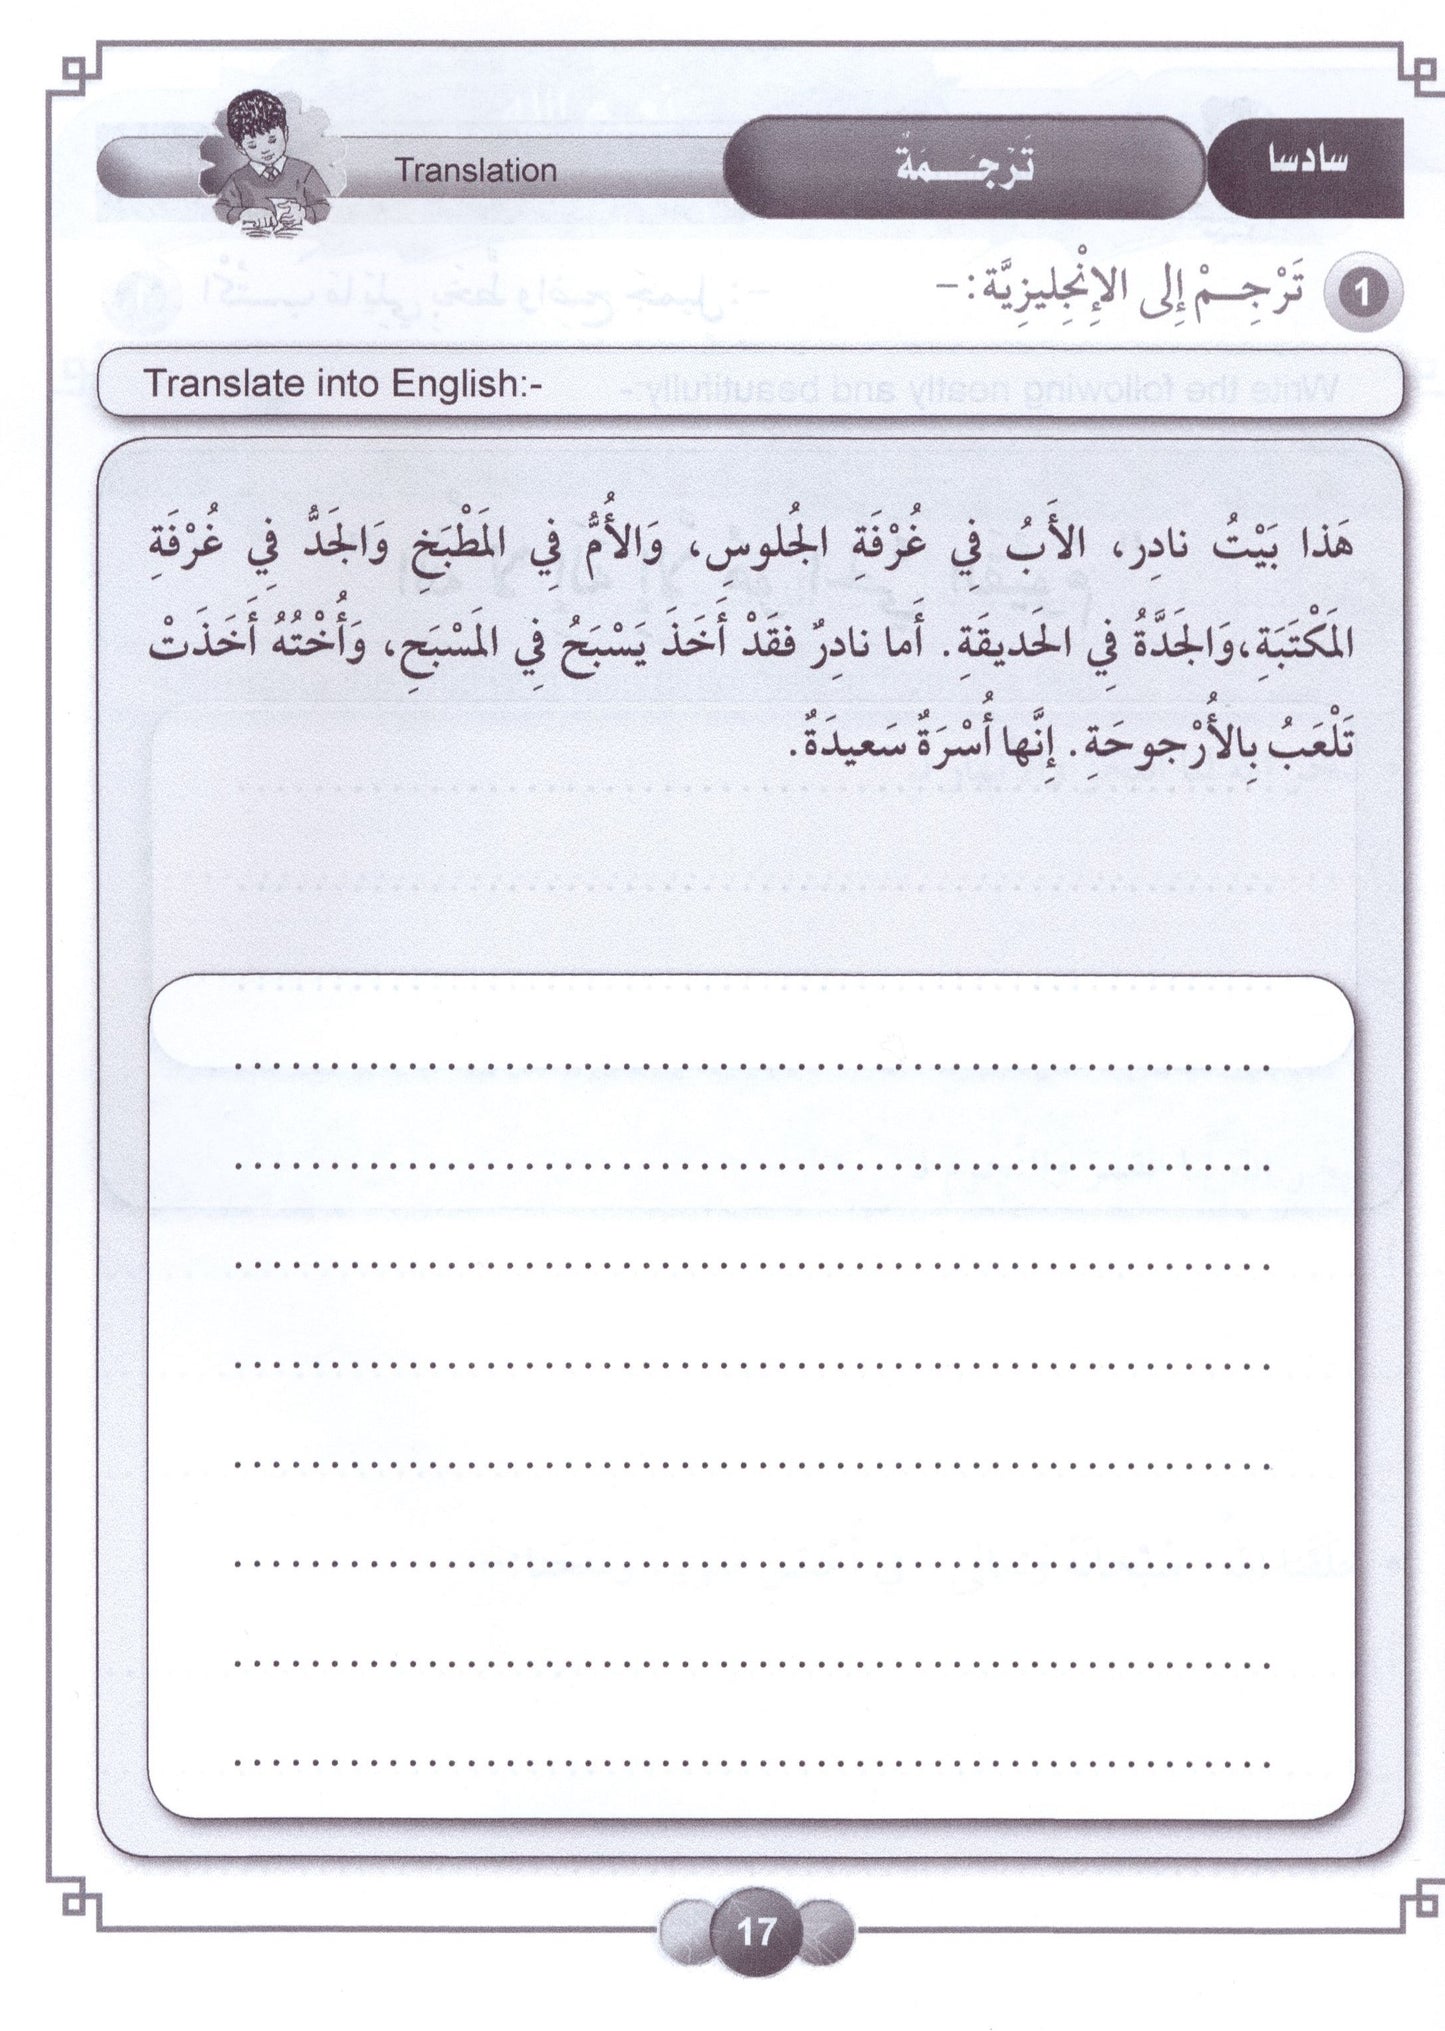 سادسا
تَرْجَـــمَةٌ
Translation
1 تَرْجِـــمْ إِلى الإِنْجِلِيزِيَّة:-
Translate into English:-
هَذا بَيْتُ نادِر، الأَبُ فِي غُرْفَةِ الجُلوسِ، وَالأُمُّ فِي المَطْبَخِ وَالجَدُّ فِي غُرْفَةِ
المَكْتَبَةِ،وَالجَدَّةُ فِي الحَديقَةِ. أَما نادِرٌ فقَدْ أَخَذَ يَسْبَحُ فِي المَسْبَحِ، وَأُخْتُهُ أَخَذَتْ
تَلْعَبُ بِالأُرْجوحَةِ. إِنَّها أُسْرَةٌ سَعيدَةٌ.
17